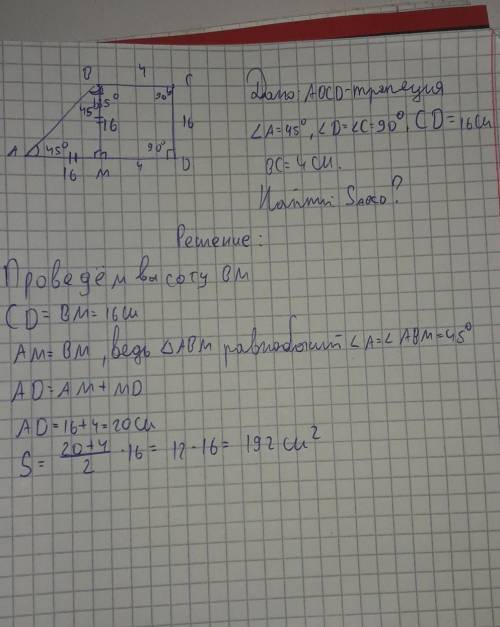 B 4 C
45° 45° 90°
16 16
A 45° 90° D
M 4
16
Дано: ABCD-трапеция
∠A=45°, ∠D=∠C=90°, CD=16см
BC=4см.
Найти: SABCD?
Решение:
Проведём высоту BM
CD=BM=16см
AM=BM, ведь △ABM равнобит ∠A=∠ABM=45°
AD=AM+MD
AD=16+4=20см
S= 20+4/2 ·16= 12·16= 192 см²